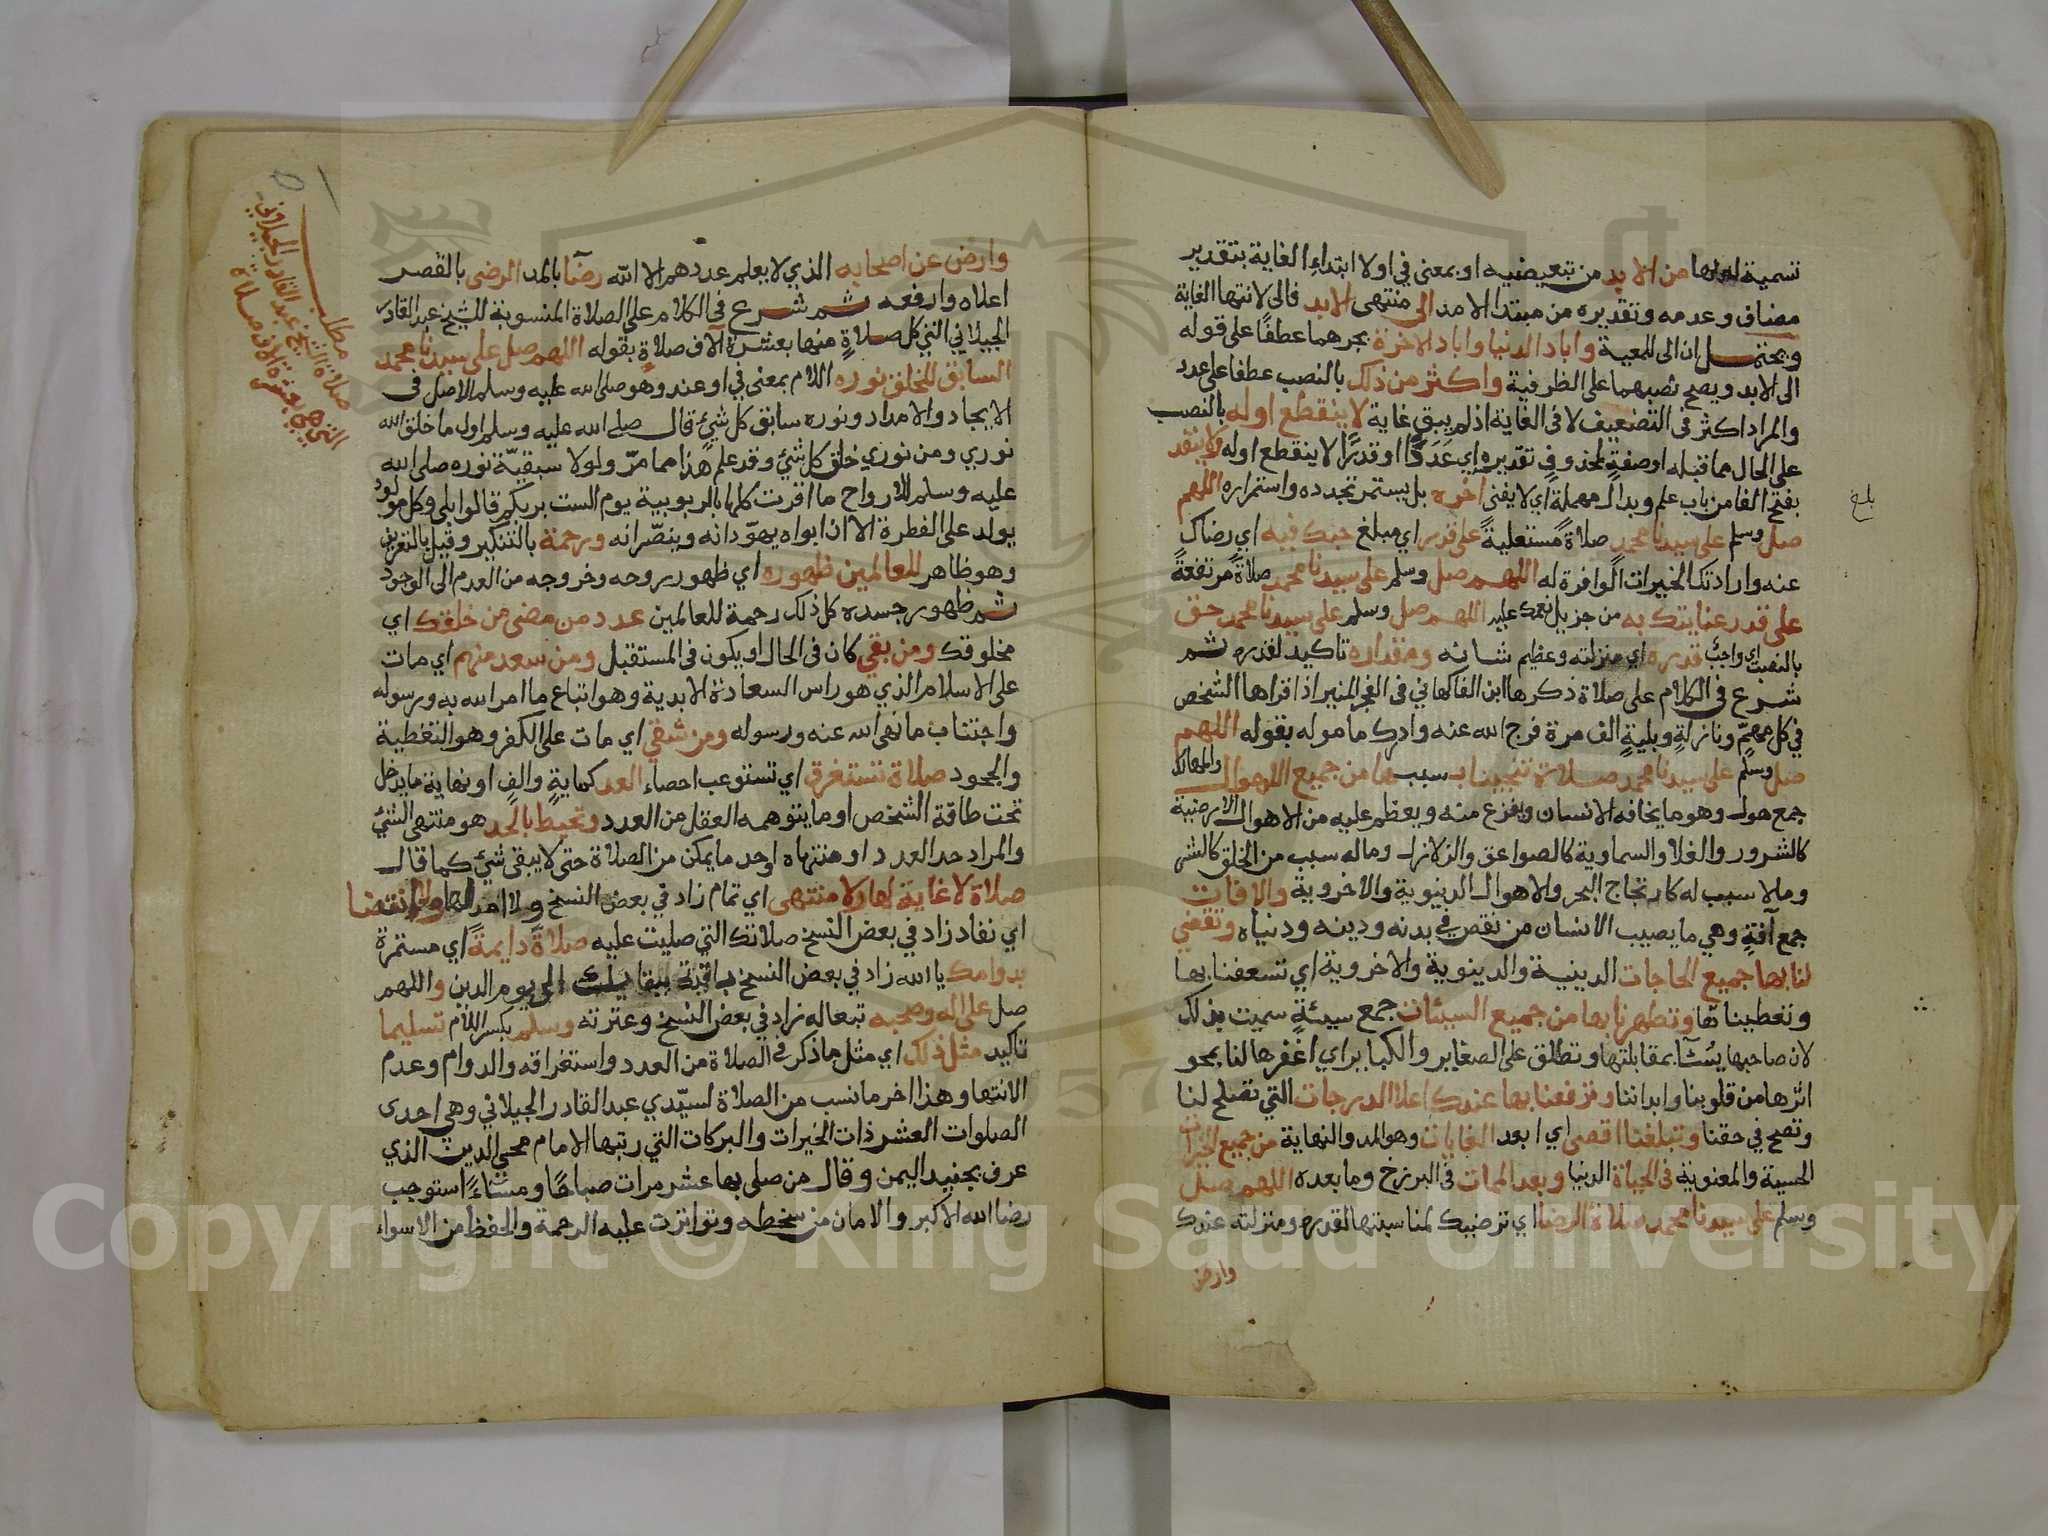 تسمية من الابد من تبعيضيه او بمعنى في او لابتداء الغاية بتقدير
مضاف وعدمه وتقديره من مبتدا الامد الى منتهى الابد فالى لانتها الغاية
ويحتمل ان الى للمعية واباد الدنيا واباد الاخرة بجرهما عطفا على قوله
الى الابد ويصح نصبهما على الظرفية واكثر من ذلك بالنصب عطفا على عدد
والمراد اكثر في التضعيف لا في الغاية اذ لم يبق غاية لا ينقطع اوله بالنصب
على الحال مما قبله او صفة لمحذوف تقديره اي عَدَدًا او قدرًا لا ينقطع اوله ولا ينفد
بفتح الفا من باب علم وبدال مهملة اي لا يفنى اخره بل يستمر تجدده واستمراره اللهم
صل وسلم على سيدنا محمد صلاةً مستعليةً على قدر اي مبلغ حبك فيه اي رضاك
عنه وارادتك الخيرات الوافرة له اللهم صل وسلم على سيدنا محمد صلاةً مرتفعةً
على قدر عنايتك به من جزيل نعمك عليه اللهم صل وسلم على سيدنا محمد حق
بالنصب اي واجب قدره اي منزلته وعظيم شانه ومقداره تاكيد لقدره ثم
شرع في الكلام على صلاة ذكرها ابن الفاكهاني في الفجر المنير اذا قراها الشخص
في كل مهمٍّ ونازلةٍ وبليةٍ الف مرة فرج الله عنه وادرك ماموله بقوله اللهم
صل وسلم على سيدنا محمد صلاة تنجينا بسببها من جميع الاهوال
جمع هول وهو ما يخافه الانسان ويفزع منه ويعظم عليه من الاهوال الارضية
كالشرور والغلا والسماوية كالصواعق والزلازل وماله سبب من الخلق كالشر
وما لا سبب له كارتجاج البحر والاهوال الدنيوية والاخروية والافات
جمع آفةٍ وهي ما يصيب الانسان من نقص في بدنه ودينه ودنياه وتقضي
لنا بها جميع الحاجات الدينية والدنيوية والاخروية اي تسعفنا بها
وتعطينا بها وتطهرنا بها من جميع السيئات جمع سيئةٍ سميت بذلك
لان صاحبها يُسَٓأ بمقابلتها وتطلق على الصغاير والكباير اي اغفرها لنا بمحو
اثرها من قلوبنا وابداننا وترفعنا بها عندك اعلا الدرجات التي تصلح لنا
وتصح في حقنا وتبلغنا اقصى اي ابعد الغايات وهو المد والنهاية من جميع الخيرات
الحسية والمعنوية في الحياة الدنيا وبعد الممات في البرزخ وما بعده اللهم صل
وسلم على سيدنا محمد صلاة الرضا اي ترضيك لمناسبتها لقدره ومنزلته عندك
وارض
بلغ
وارض عن اصحابه الذي لا يعلم عددهم الا الله رضآ بالمد الرضى بالقصر
اعلاه وارفعه ثم شرع في الكلام على الصلاة المنسوبة للشيخ عبد القادر
الجيلاني التي كل صلاةٍ منها بعشرة آلاف صلاةٍ بقوله اللهم صل على سيدنا محمد
السابق للخلق نوره اللام بمعنى في او عند وهو صلى الله عليه وسلم الاصل في
الايجاد والامداد ونوره سابق كل شيء قال صلى الله عليه وسلم اول ما خلق الله
نوري ومن نوري خلق كل شيء وقد علم هذا مما مرّ ولولا سبقيّة نوره صلى الله
عليه وسلم للارواح ما اقرت كلها بالربوبية يوم الست بربكم قالوا بلى وكل مولود
يولد على الفطرة الا ان ابواه يهوّدانه وينصّرانه ورحمة بالتنكير وقيل بالتعريف
وهو ظاهر للعالمين ظهوره اي ظهور روحه وخروجه من العدم الى الوجود
ثم ظهور جسده كل ذلك رحمة للعالمين عدد من مضى من خلقك اي
مخلوقك ومن بقي كان في الحال او يكون في المستقبل ومن سعد منهم اي مات
على الاسلام الذي هو راس السعادة الابدية وهو اتباع ما امر الله به ورسوله
واجتناب ما نهى الله عنه ورسوله ومن شقي اي مات على الكفر وهو التغطية
والجحود صلاة تستغرق اي تستوعب احصاء العد كمايةٍ والفٍ او نهاية ما يدخل
تحت طاقة الشخص او ما يتوهمه العقل من العدد وتحيط بالحد هو منتهى الشيء
والمراد حد العدد او منتهاه او حد ما يمكن من الصلاة حتى لا يبقى شيء كما قال
صلاة لا غاية لها ولا منتهى اي تمام زاد في بعض النسخ ولا امد لها ولا انقضا
اي نفاد زاد في بعض النسخ صلاتك التي صليت عليه صلاةً دايمةً اي مستمرة
بدوامك يا الله زاد في بعض النسخ باقية ببقايك الى يوم الدين واللهم
صل على اله وصحبه تبعا له زاد في بعض النسخ وعترته وسلم بكسر اللام تسليما
تاكيد مثل ذلك اي مثل ما ذكر في الصلاة من العدد واستغراقه والدوام وعدم
الانتها وهذا اخر ما نسب من الصلاة لسيّدي عبد القادر الجيلاني وهي احدى
الصلوات العشر ذات الخيرات والبركات التي رتبها الامام محيي الدين الذي
عرف بجنيد اليمن وقال من صلى بها عشر مرات صباحًا ومساءً استوجب
رضا الله الاكبر والامان من سخطه وتواترت عليه الرحمة والحفظ من الاسواء
مطلب
صلاة الشيخ عبد القادر الجيلاني
التي هي بعشرة الاف صلاة
Copyright © King Saud University